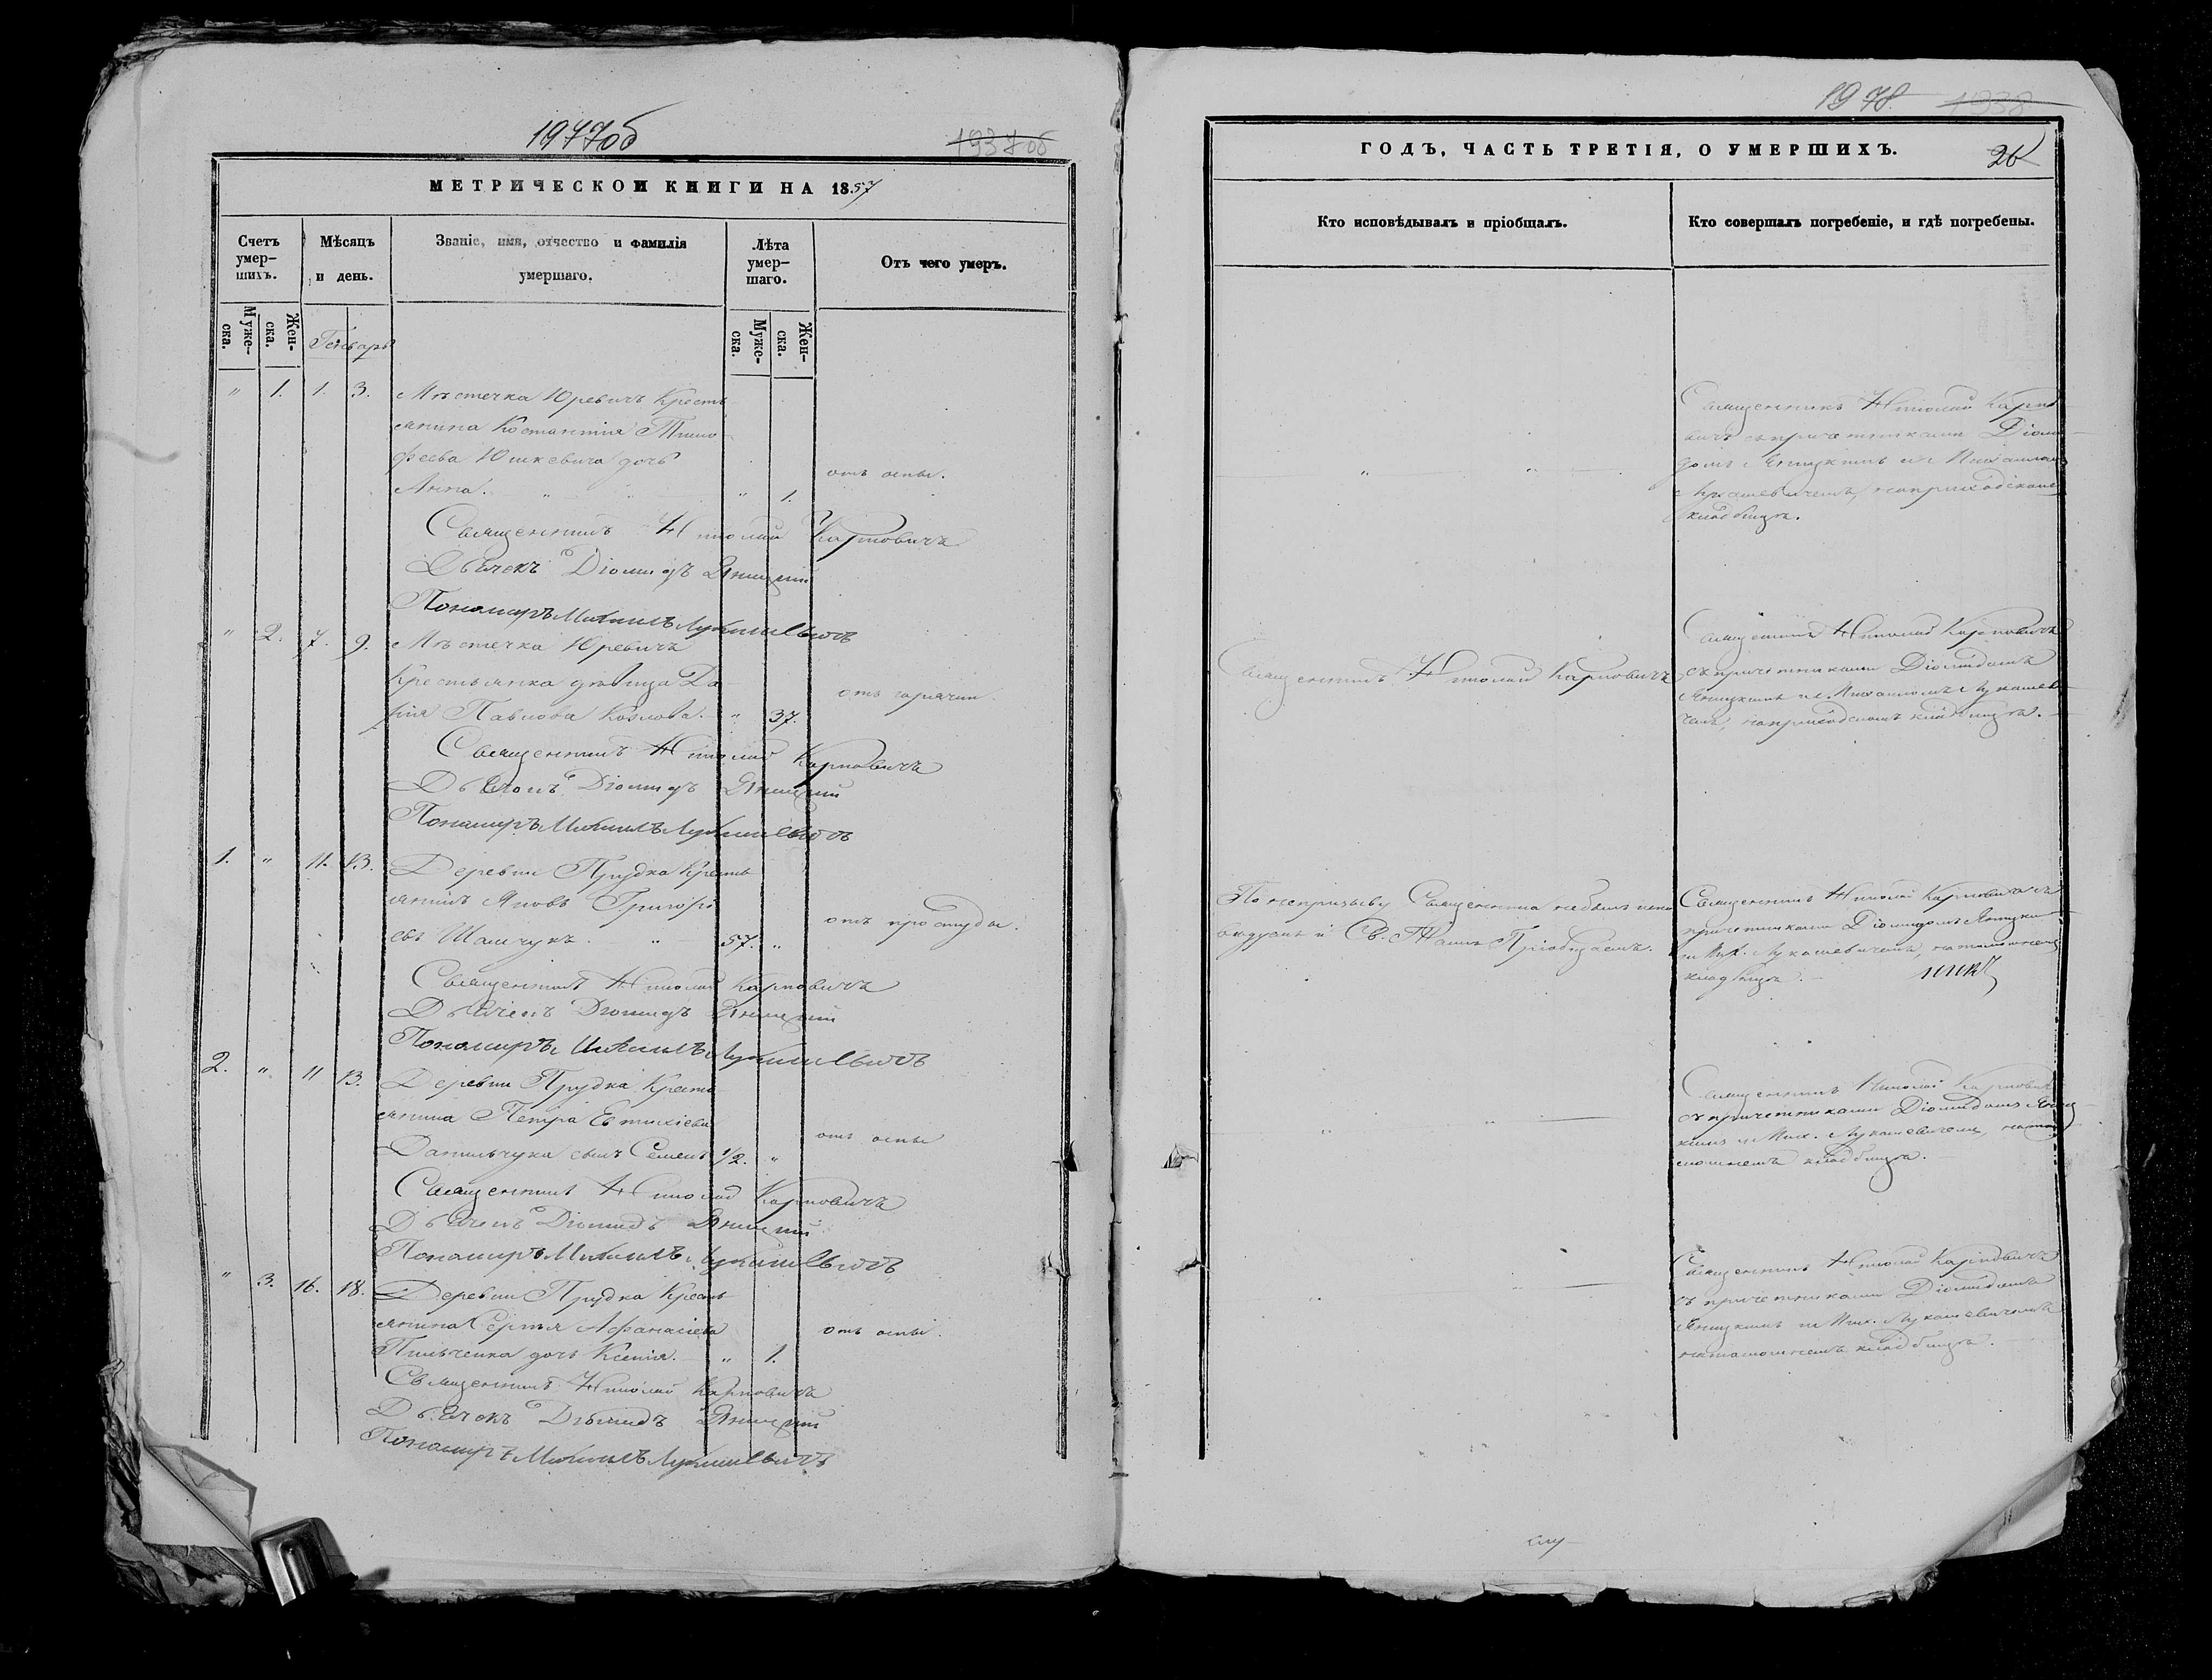 1977об
1937об
МЕТРИЧЕСКОЙ КНИГИ НА 1857
Счетъ умер-шихъ.
Мѣсяцъ и день.
Званіе, имя, отчество и фамилія умершаго.
Лѣта умер-шаго.
Отъ чего умеръ.
Муже-ска.
Жен-ска.
Генварь
Муже-ска.
Жен-ска.
" 1. 1. 3. Мѣстечка Юревичъ Кресть
янина Костантія Тимо
феева Юшкевича дочь
отъ оспы.
Анна. " 1.
Священникъ Николай Карповичъ
Дьячекъ Діомидъ Яницкій
Пономаръ Михаилъ Лукашевичъ
" 2. 7. 9. Мѣстечка Юревичъ
Крестьянка дѣвица Да
рія Павлова Козлова. " 37. отъ горячки
Священникъ Николай Карповичъ
Дьячекъ Діомидъ Яницкій
Пономаръ Михаилъ Лукашевичъ
1. " 11. 13. Деревни Прудка Кресть
янинъ Яковъ Григорь
евъ Шамчукъ. " 57. " отъ простуды.
Священникъ Николай Карповичъ
Дьячекъ Діомидъ Яницкій
Пономаръ Михаилъ Лукашевичъ
2. " 11 13. Деревни Прудка Кресть
янина Петра Евтихіева
Данильчука сынъ Семенъ 1/2. " отъ оспы
Священникъ Николай Карповичъ
Дьячекъ Діомидъ Яницкій
Пономаръ Михаилъ Лукашевичъ
" 3. 16. 18. Деревни Прудка Кресть
янина Сергѣя Афанасіева отъ оспы.
дочь Ксенія. " 1.
Священникъ Николай Карповичъ
Дьячекъ Діомидъ Яницкій
Пономаръ Михаилъ Лукашевичъ
1978 1938
ГОДЪ, ЧАСТЬ ТРЕТІЯ, О УМЕРШИХЪ.
26
Кто исповѣдывалъ и пріобщалъ.
Кто совершалъ погребеніе, и гдѣ погребены.
" "
Священникъ Николай Карпо
вичъ съ причетниками Діоми
домъ Яницкимъ и Михаиломъ
Лукашевичемъ, на приходскомъ
кладбищѣ.
Священникъ Николай Карповичъ
Священникъ Николай Карповичъ
съ причетниками Діомидомъ
Яницкимъ и Михаиломъ Лукашеви
чемъ, на приходскомъ кладбищѣ.
По непризыву Священника небылъ испо
вѣдуемъ и Св. Таинъ Пріобщаемъ.
Священникъ Николай Карповичъ съ
причетниками Діомидомъ Яницким
и Мих. Лукашевичемъ, на тамошнемъ
кладбищѣ.
" "
Священникъ Николай Карповичъ
съ причетниками Діомидомъ Яниц
кимъ и Мих. Лукашевичемъ, на та
мошнемъ кладбищѣ.
" "
Священникъ Николай Карповичъ
съ причетниками Діомидомъ
Яницкимъ и Мих. Лукашевичемъ
на тамошнемъ кладбищѣ.